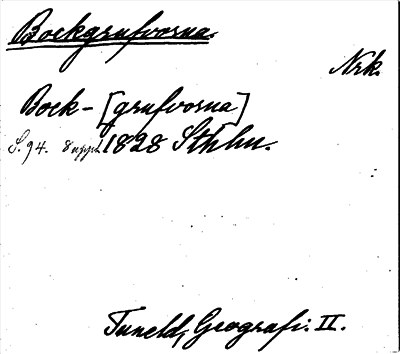 Bockgrufvorna.
Nrk.
Bock- [grufvorna]
S. 94. 8 uppl. 1828 Sthlm.
Tuneld, Geografi. II.